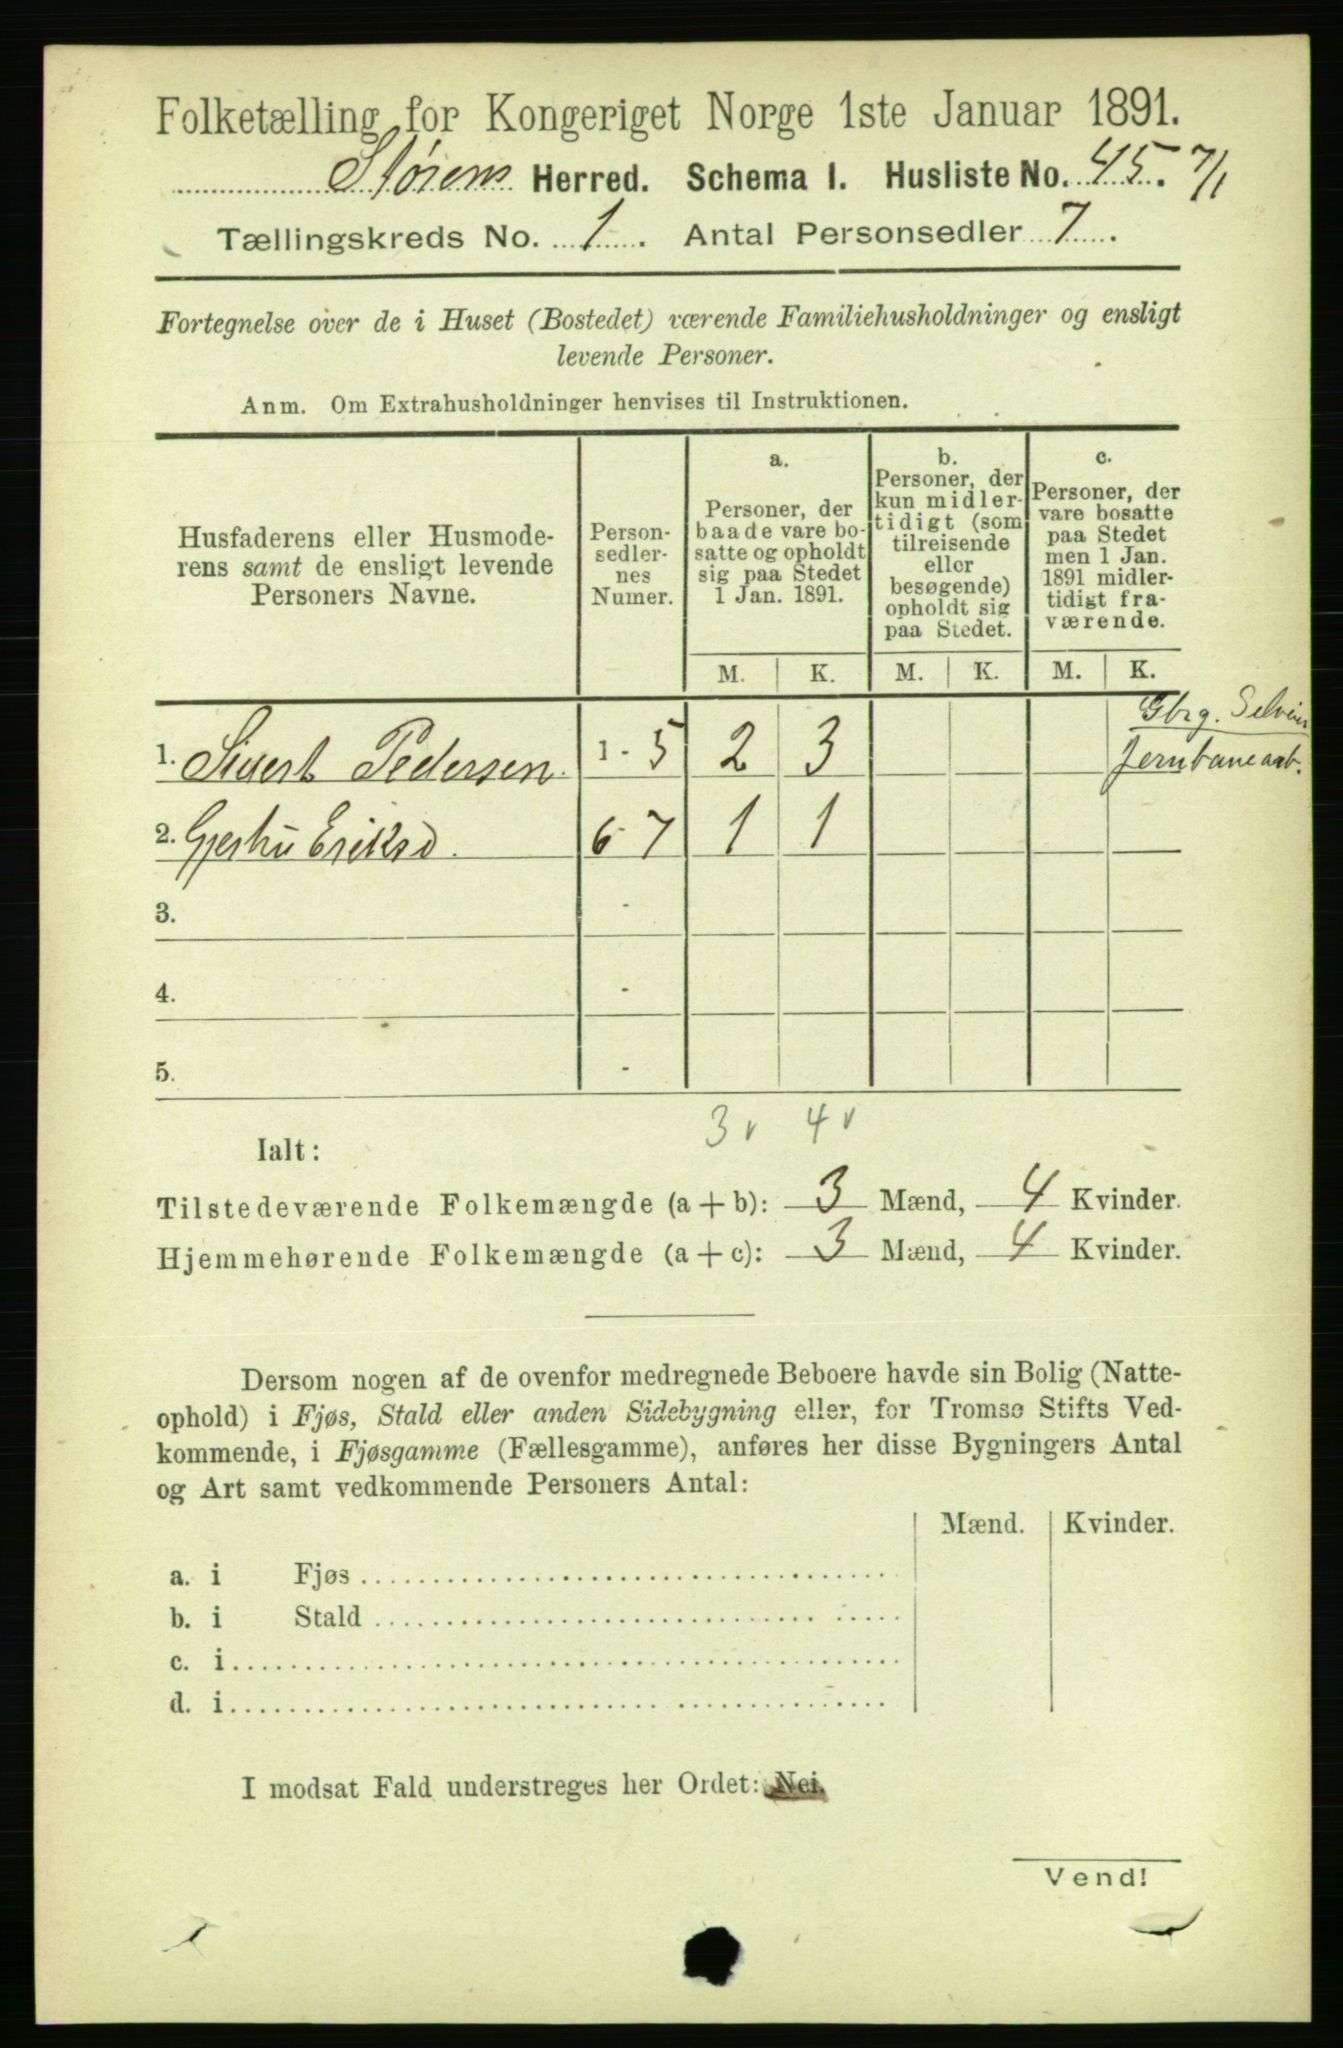 Folketælling for Kongeriget Norge 1ste Januar 1891.
Størens Herred. Schema I. Husliste No. 45. 7/1
Tællingskreds No. 1. Antal Personsedler 7.
Fortegnelse over de i Huset (Bostedet) værende Familiehusholdninger og ensligt
levende Personer.
Anm. Om Extrahusholdninger henvises til Instruktionen.
Husfaderens eller Husmode-
rens samt de ensligt levende
Personers Navne.
Person-
sedler-
nes
Numer.
a.
Personer, der
baade vare bo-
satte og opholdt
sig paa Stedet
1 Jan. 1891.
b.
Personer, der
kun midler-
tidigt (som
tilreisende
eller
besøgende)
opholdt sig
paa Stedet.
c.
Personer, der
vare bosatte
paa Stedet
men 1 Jan.
1891 midler-
tidigt fra-
værende.
M. K. M. K. M. K.
Gbrg. Selvei
1. Sivert Pedersen 1 - 5 2 3 Jernbanearb.
2. 6 - 7 1 1
3. -
4. -
5. -
3 v 4 v
Ialt:
Tilstedeværende Folkemængde (a + b): 3 Mænd, 4 Kvinder.
Hjemmehørende Folkemængde (a + c): 3 Mænd, 4 Kvinder.
Dersom nogen af de ovenfor medregnede Beboere havde sin Bolig (Natte-
ophold) i Fjøs, Stald eller anden Sidebygning eller, for Tromsø Stifts Ved-
kommende, i Fjøsgamme (Fællesgamme), anføres her disse Bygningers Antal
og Art samt vedkommende Personers Antal:
Mænd. Kvinder.
a. i Fjøs
b. i Stald
c. i
d. i
I modsat Fald understreges her Ordet: Nei.
Vend!